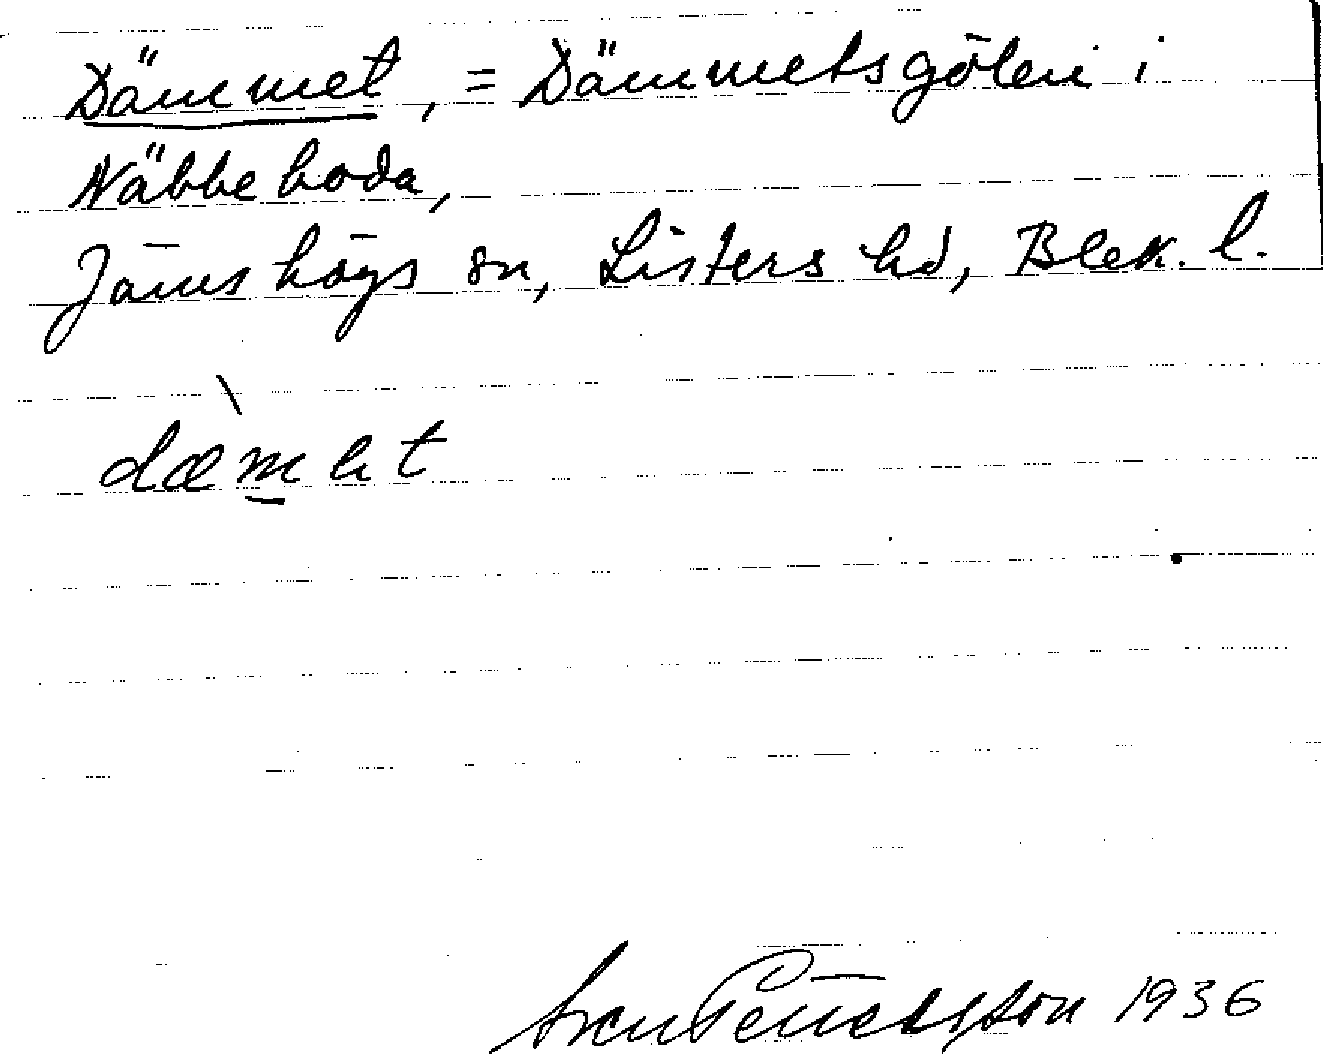 Dämmet, = Dämmetsgölen i
Näbbeboda,
Jämshögs sn, Listers hd, Blek. l.
dæmet
Sven Benson 1936